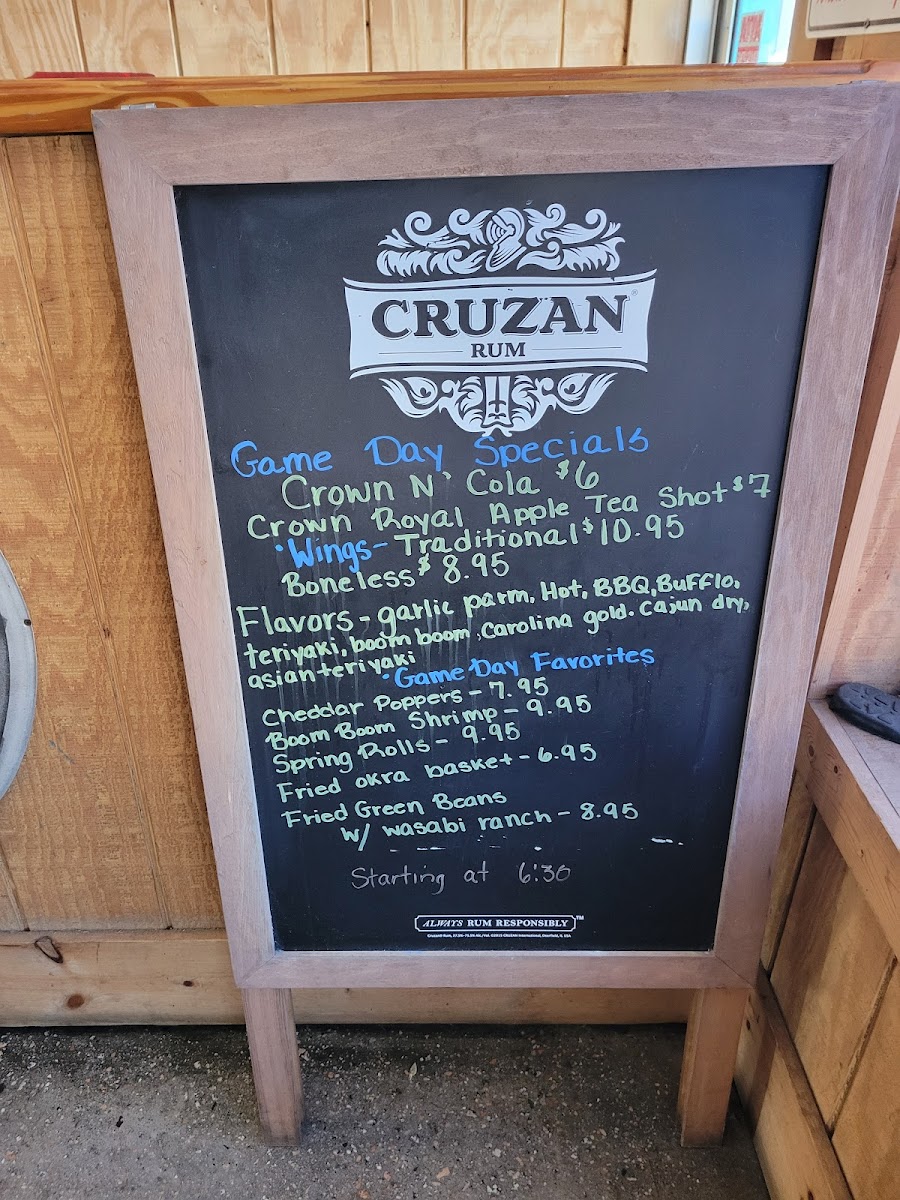 CRUZAN®
RUM
Game Day Specials
Crown N' Cola $6
Crown Royal Apple Tea Shot $7
•Wings- Traditional $10.95
Boneless $8.95
Flavors - garlic parm, Hot, BBQ, Bufflo,
teriyaki, boom boom, Carolina gold. cajun dry,
asian teriyaki
•Game Day Favorites
Cheddar Poppers - 7.95
Boom Boom Shrimp - 9.95
Spring Rolls - 9.95
Fried okra basket - 6.95
Fried Green Beans
w/ wasabi ranch - 8.95
Starting at 6:30
ALWAYS RUM RESPONSIBLY™